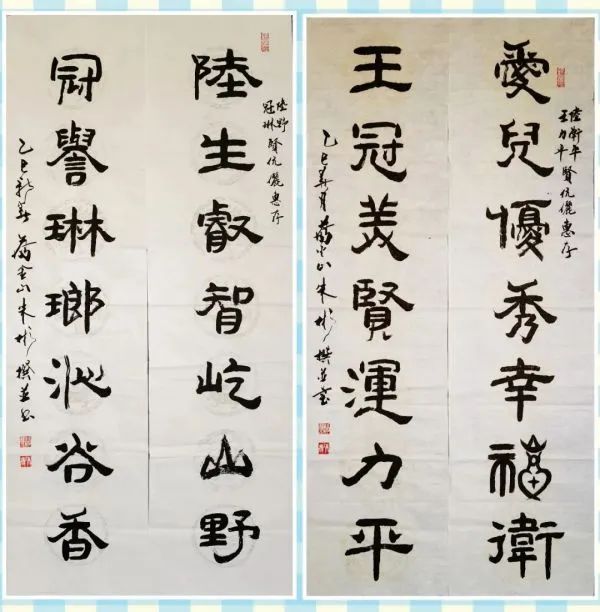 陸衛平
王力平
賢伉儷惠存
愛兒優秀幸福衛
王冠美賢運力平
乙巳春月金山朱彬撰並書
陸野
冠琳
賢伉儷惠存
陸生叡智屹山野
冠譽琳瑯沁谷香
乙巳新春金山朱彬撰並書